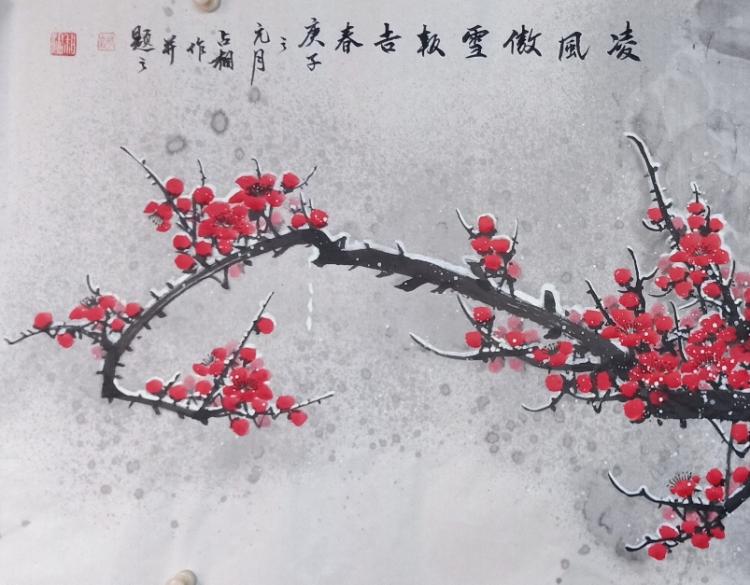 凌風傲雪報吉春
庚子
之
元月
占
作
并
題之